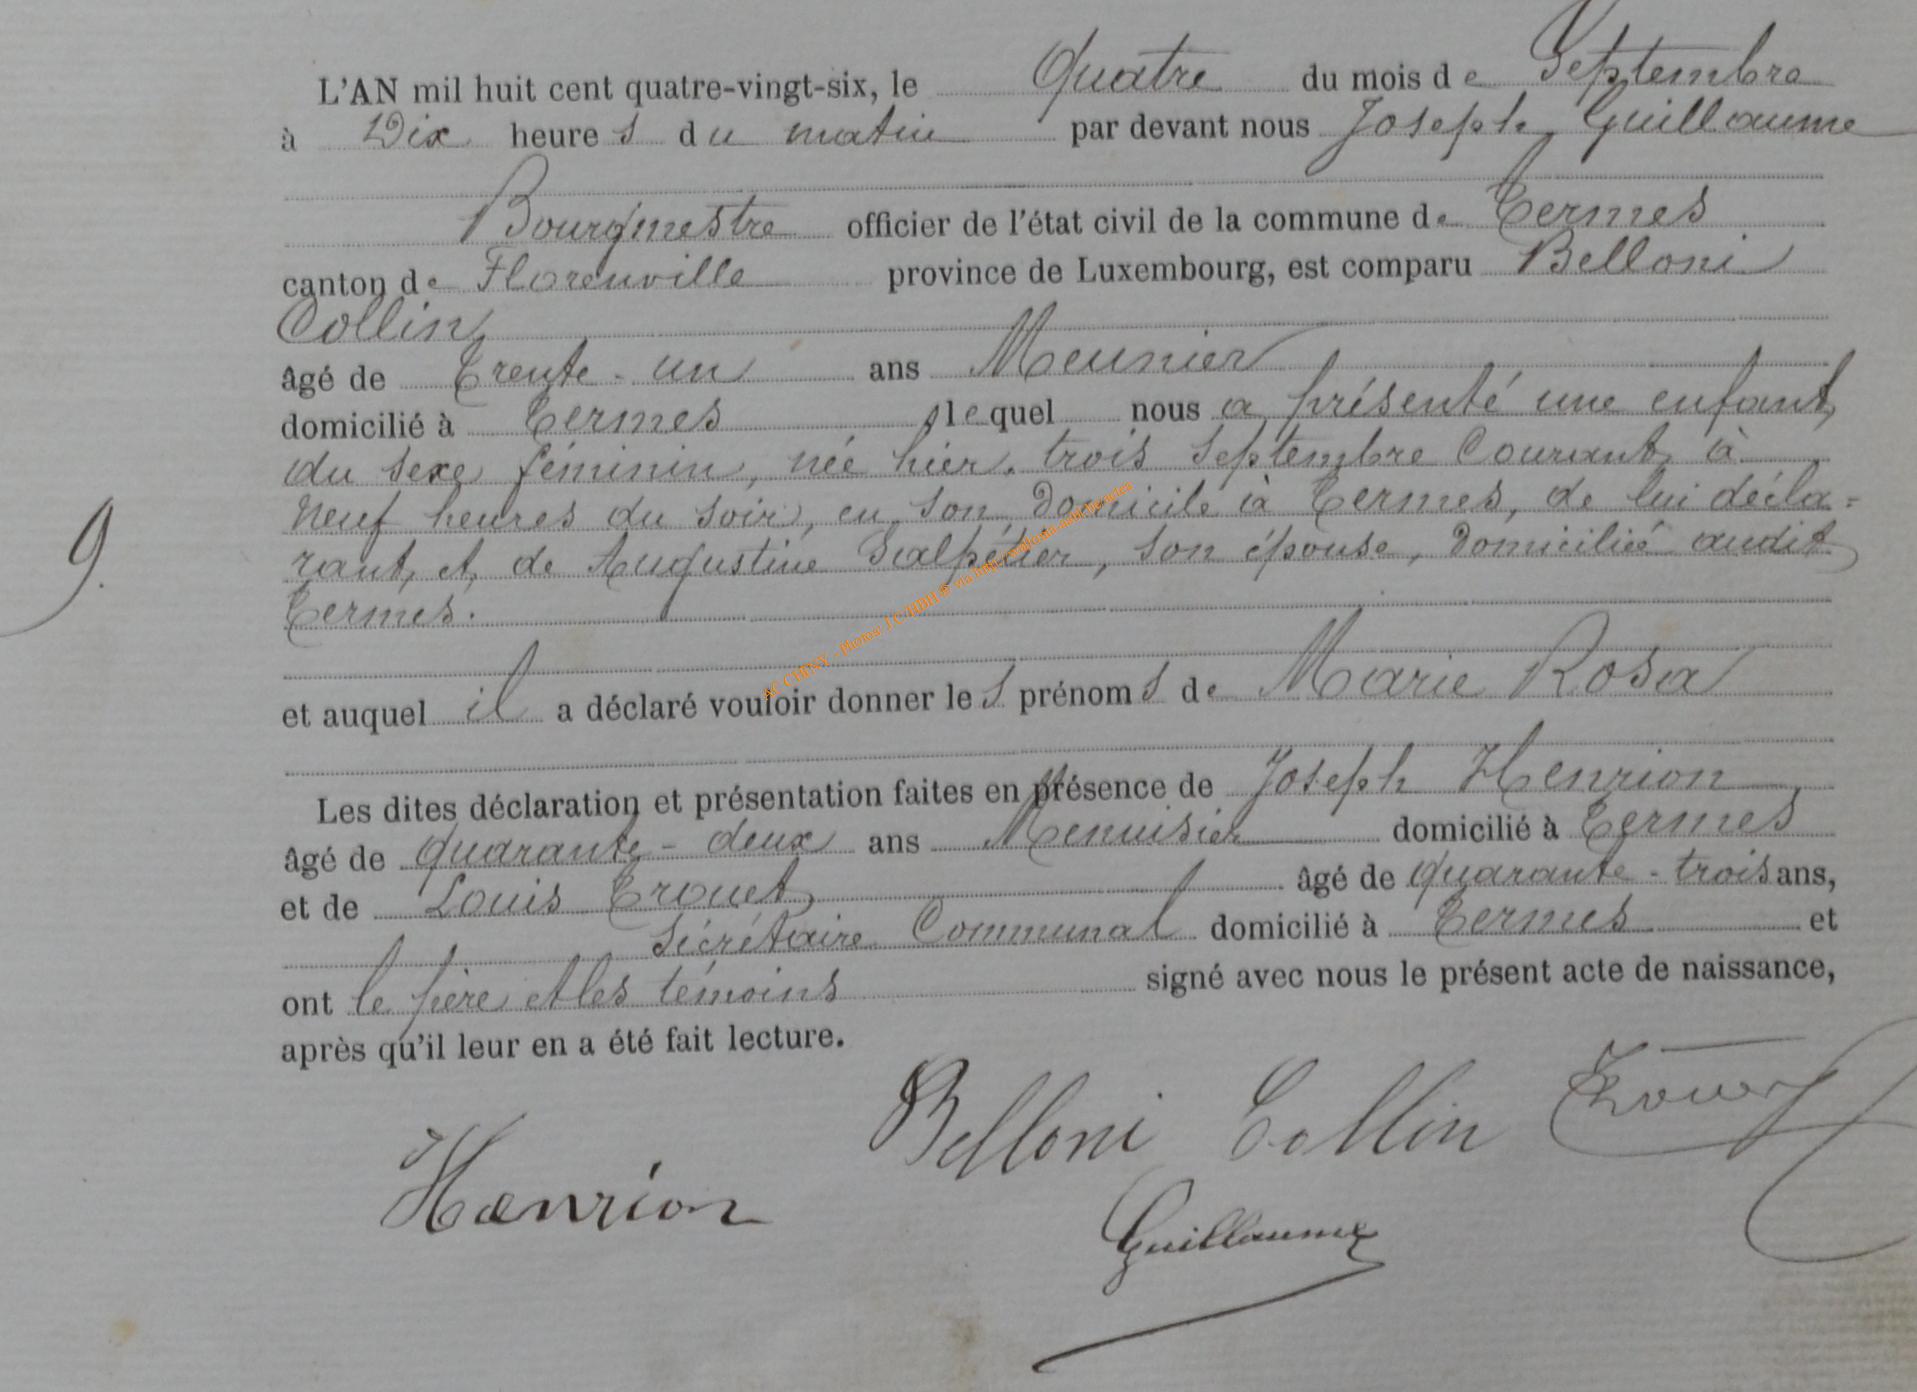 L'AN mil huit cent quatre-vingt-six, le Quatre du mois de Septembre
à Dix heures du matin par devant nous Joseph Guillaume
Bourgmestre officier de l'état civil de la commune de Termes
canton de Florenville province de Luxembourg, est comparu Belloni
Collin
âgé de Trente-un ans Meunier
domicilié à Termes lequel nous a présenté une enfant,
du sexe féminin, née hier, trois Septembre Courant, à
neuf heures du soir, en son domicile à Termes, de lui décla=
9. rant, et, de Augustine Salpétier, son épouse, domiciliée audit
Termes.
et auquel il a déclaré vouloir donner les prénoms de Marie Rosa
Les dites déclaration et présentation faites en présence de Joseph Henrion
âgé de quarante-deux ans Menuisier domicilié à Termes
et de Louis Trouet âgé de quarante-trois ans,
Sécrétaire Communal domicilié à Termes et
ont le père et les témoins signé avec nous le présent acte de naissance,
après qu'il leur en a été fait lecture.
Belloni Collin Trouet
J Henrion
Guillaume
AC CHINY - Photos: J.C HBH® via